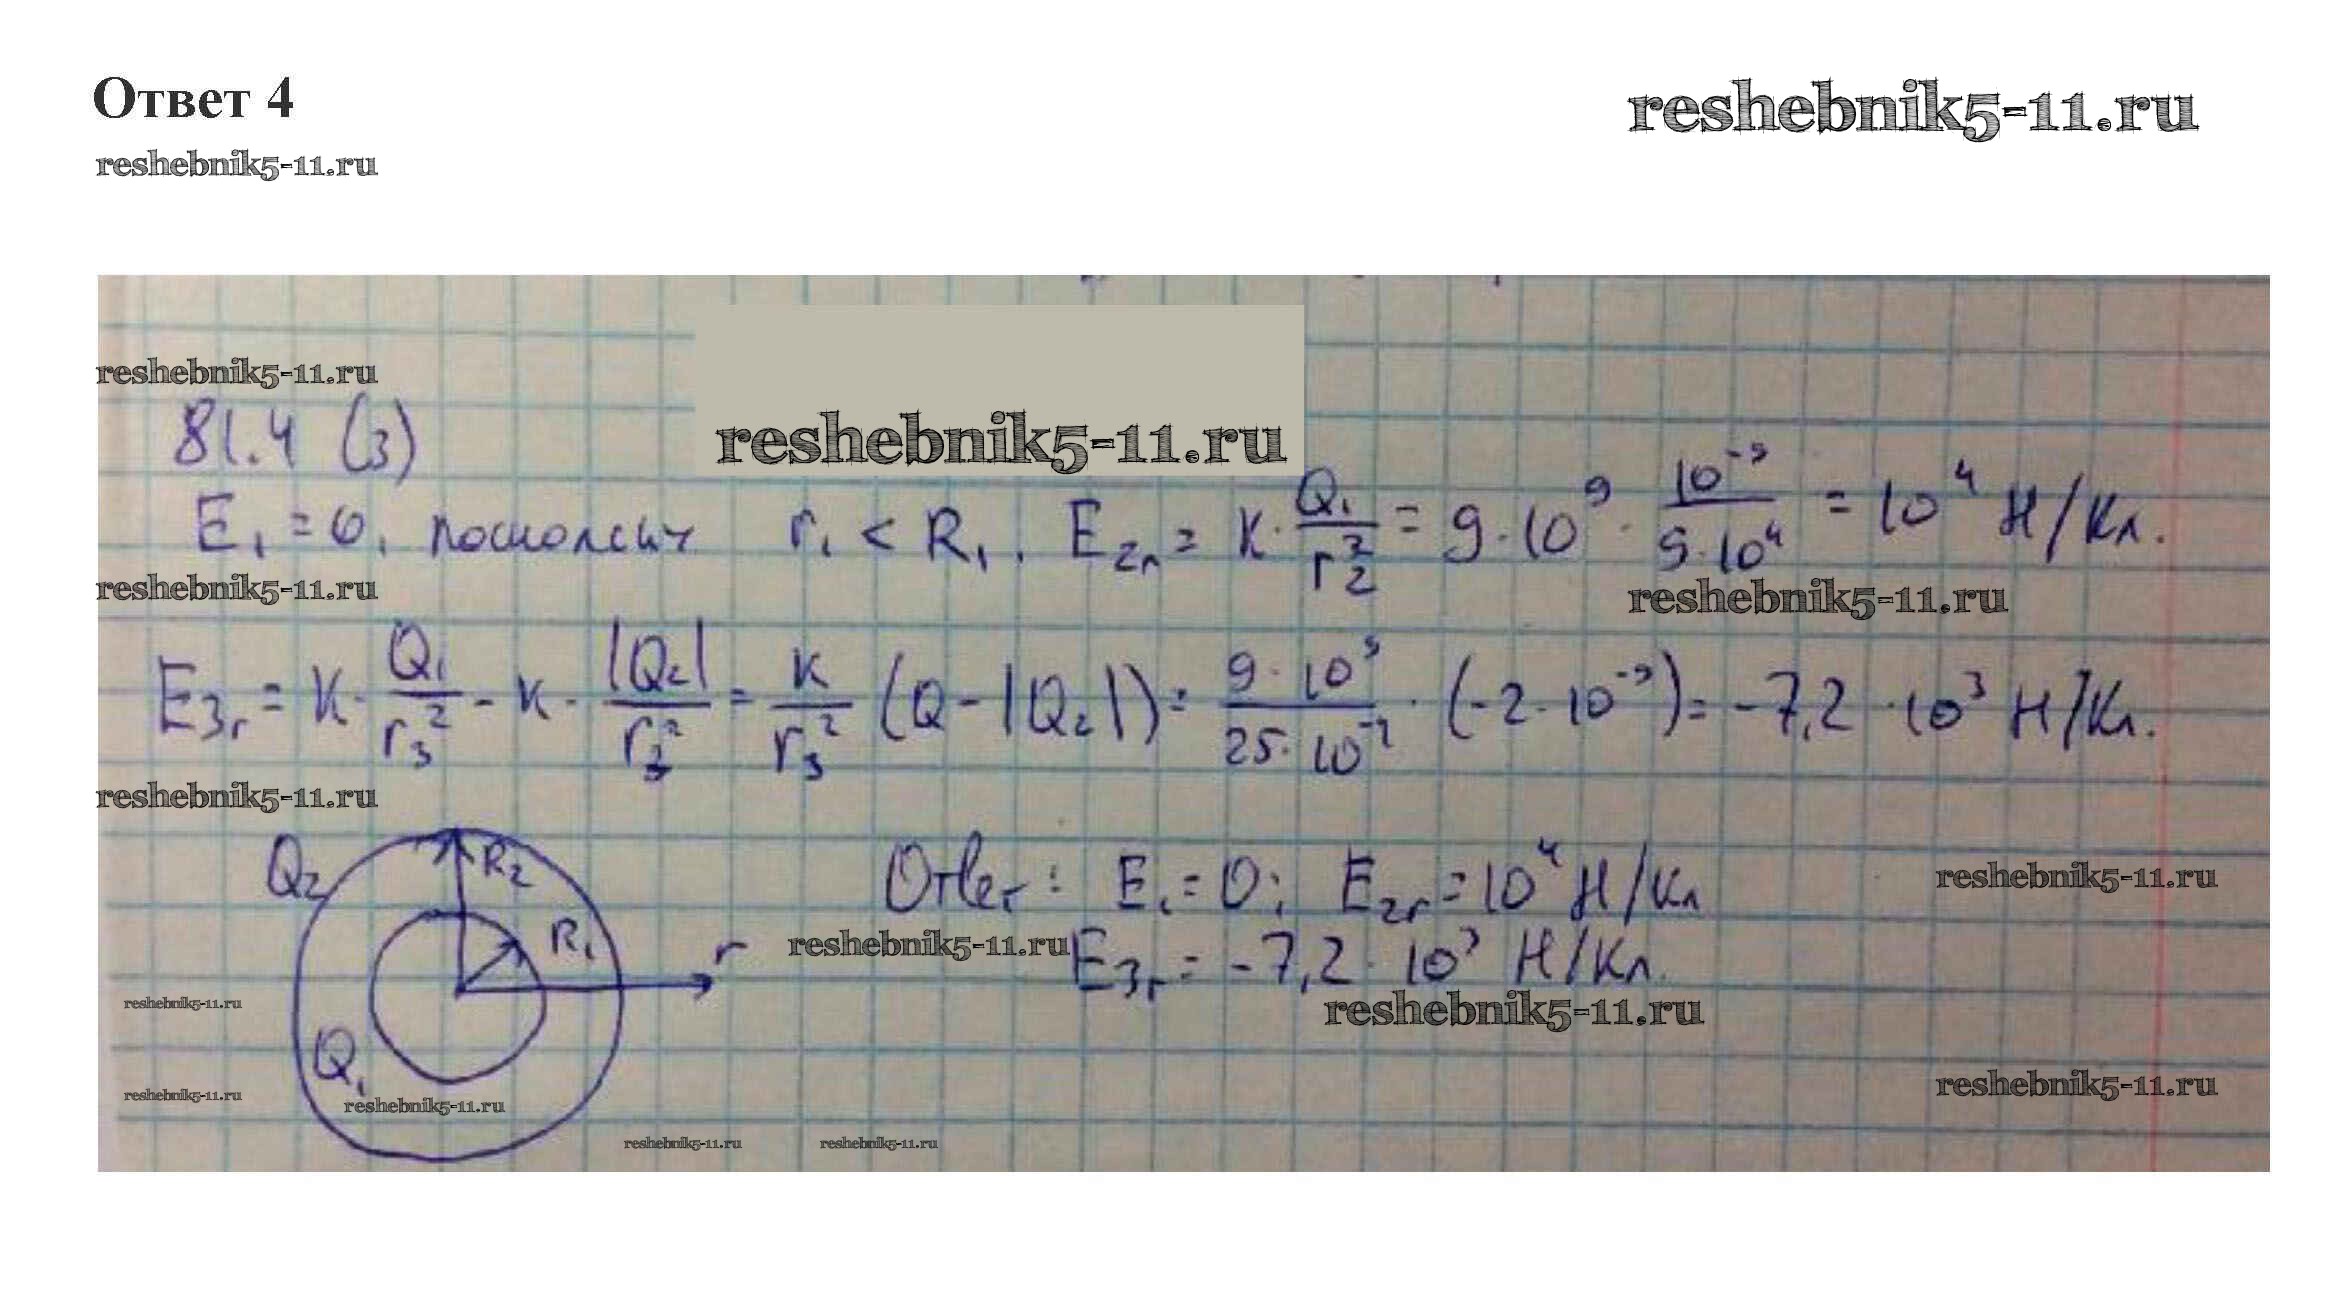 Ответ 4
reshebnik5-11.ru
reshebnik5-11.ru
reshebnik5-11.ru
reshebnik5-11.ru
81.4 (3)
E₁ = 0, r₁ < R₁. E₂ᵣ = K · Q₁/r₂² = 9 · 10⁹ · 10⁻⁹/9·10⁴ = 10⁴ Н/Кл.
reshebnik5-11.ru
reshebnik5-11.ru
E₃ᵣ = K · Q₁/r₃² - K · |Q₂|/r₃² = K/r₃² (Q - |Q₂|) = 9·10⁹/25·10⁻² · (-2·10⁻⁹) = -7,2 · 10³ Н/Кл.
reshebnik5-11.ru
Q₂ R₂
R₁ r
Q₁
Ответ: E₁ = 0; E₂ᵣ = 10⁴ Н/Кл
reshebnik5-11.ru
reshebnik5-11.ru
E₃ᵣ = -7,2 · 10³ Н/Кл.
reshebnik5-11.ru
reshebnik5-11.ru
reshebnik5-11.ru
reshebnik5-11.ru
reshebnik5-11.ru
reshebnik5-11.ru
reshebnik5-11.ru